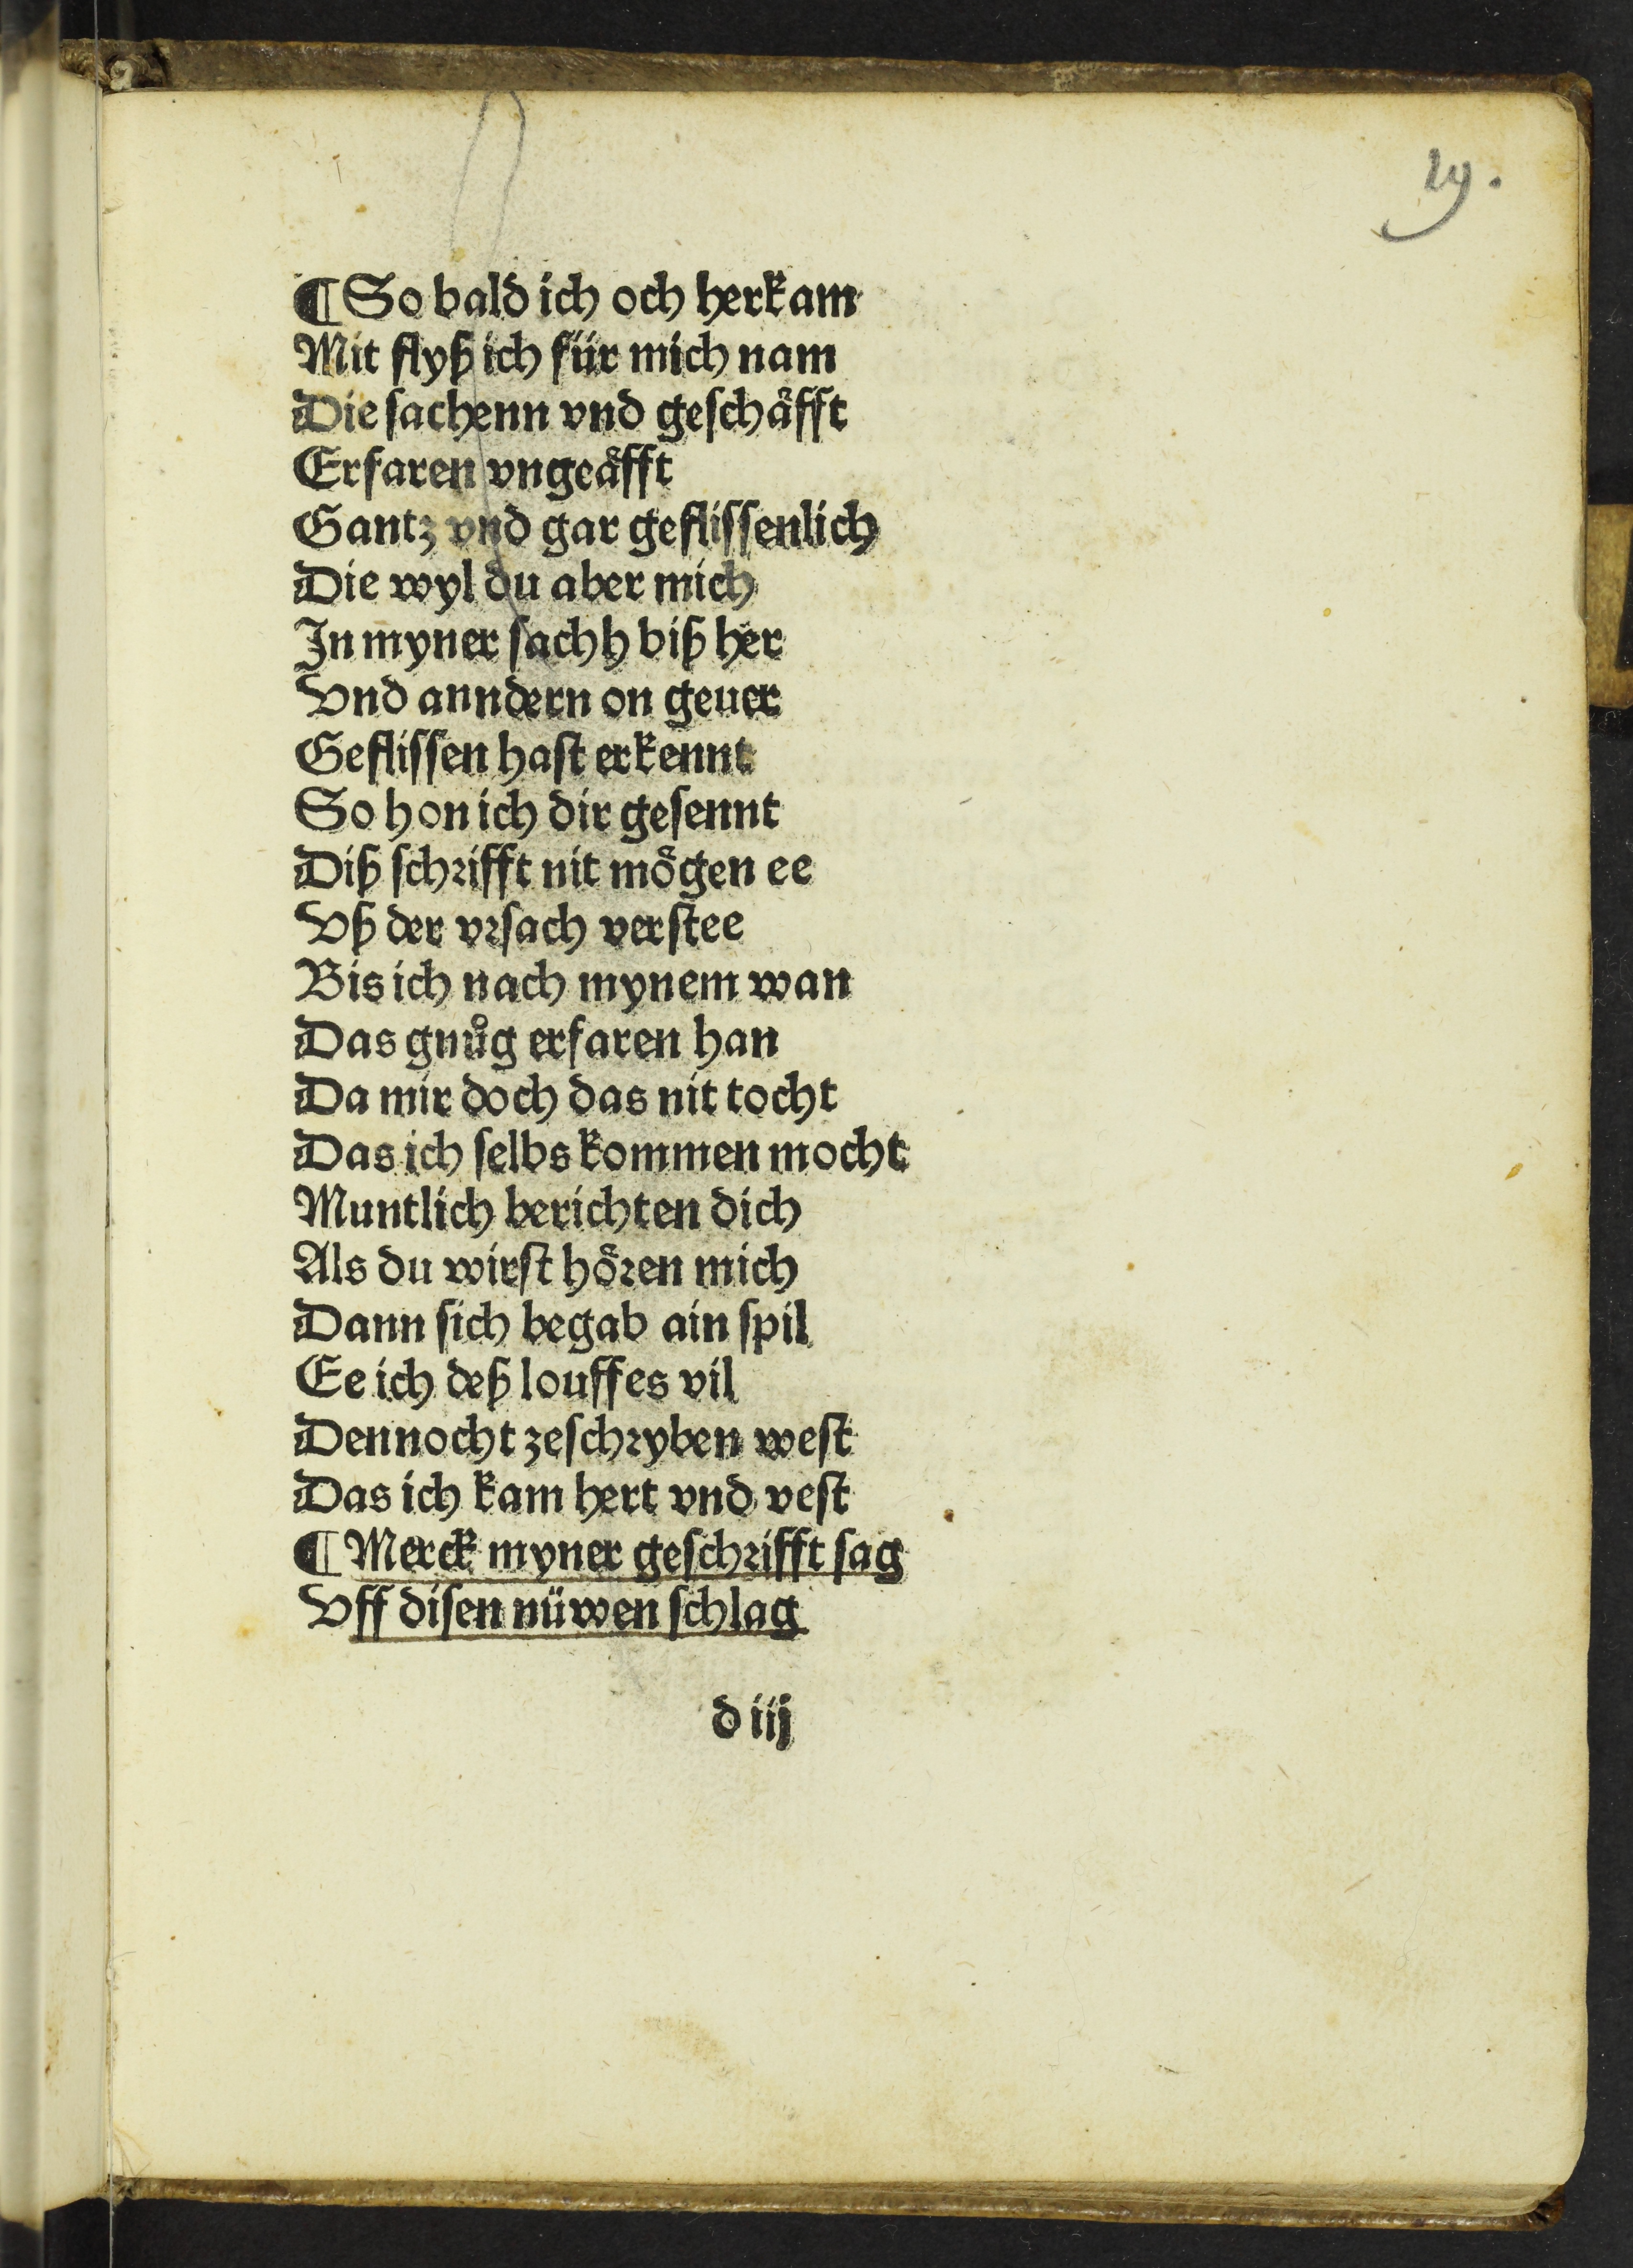 29.
¶ So bald ich och herkam
Mit flyß ich für mich nam
Die sachenn vnd geschaͤfft
Erfaren vngeaͤfft
Gantz vnd gar geflissenlich
Die wyl du aber mich
In myner sachh biß her
Vnd anndern on geuer
Geflissen hast erkennt
So hon ich dir gesennt
Diß schrifft nit moͤgen ee
Vß der vrsach verstee
Bis ich nach mynem wan
Das gnuͦg erfaren han
Da mir doch das nit tocht
Das ich selbs kommen mocht
Muntlich berichten dich
Als du wirst hoͤren mich
Dann sich begab ain spil
Ee ich deß louffes vil
Dennocht zeschryben west
Das ich kam hert vnd vest
¶ Merck myner geschrifft sag
Vff disen nüwen schlag
d iij